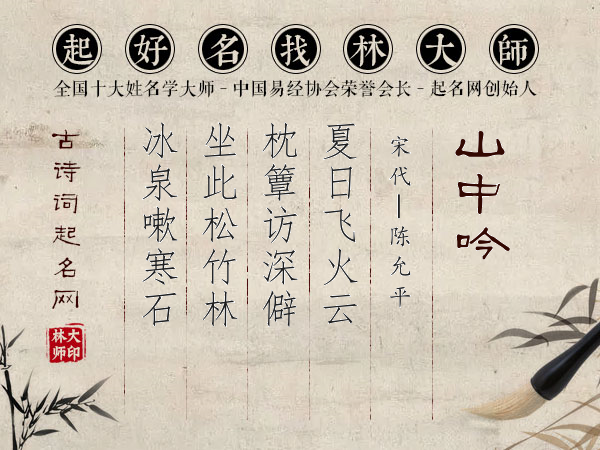 起好名找林大師
全国十大姓名学大师 - 中国易经协会荣誉会长 - 起名网创始人
山中吟
宋代—陈允平
夏日飞火云
枕簟访深僻
坐此松竹林
冰泉嗽寒石
古诗词起名网
大印
林师